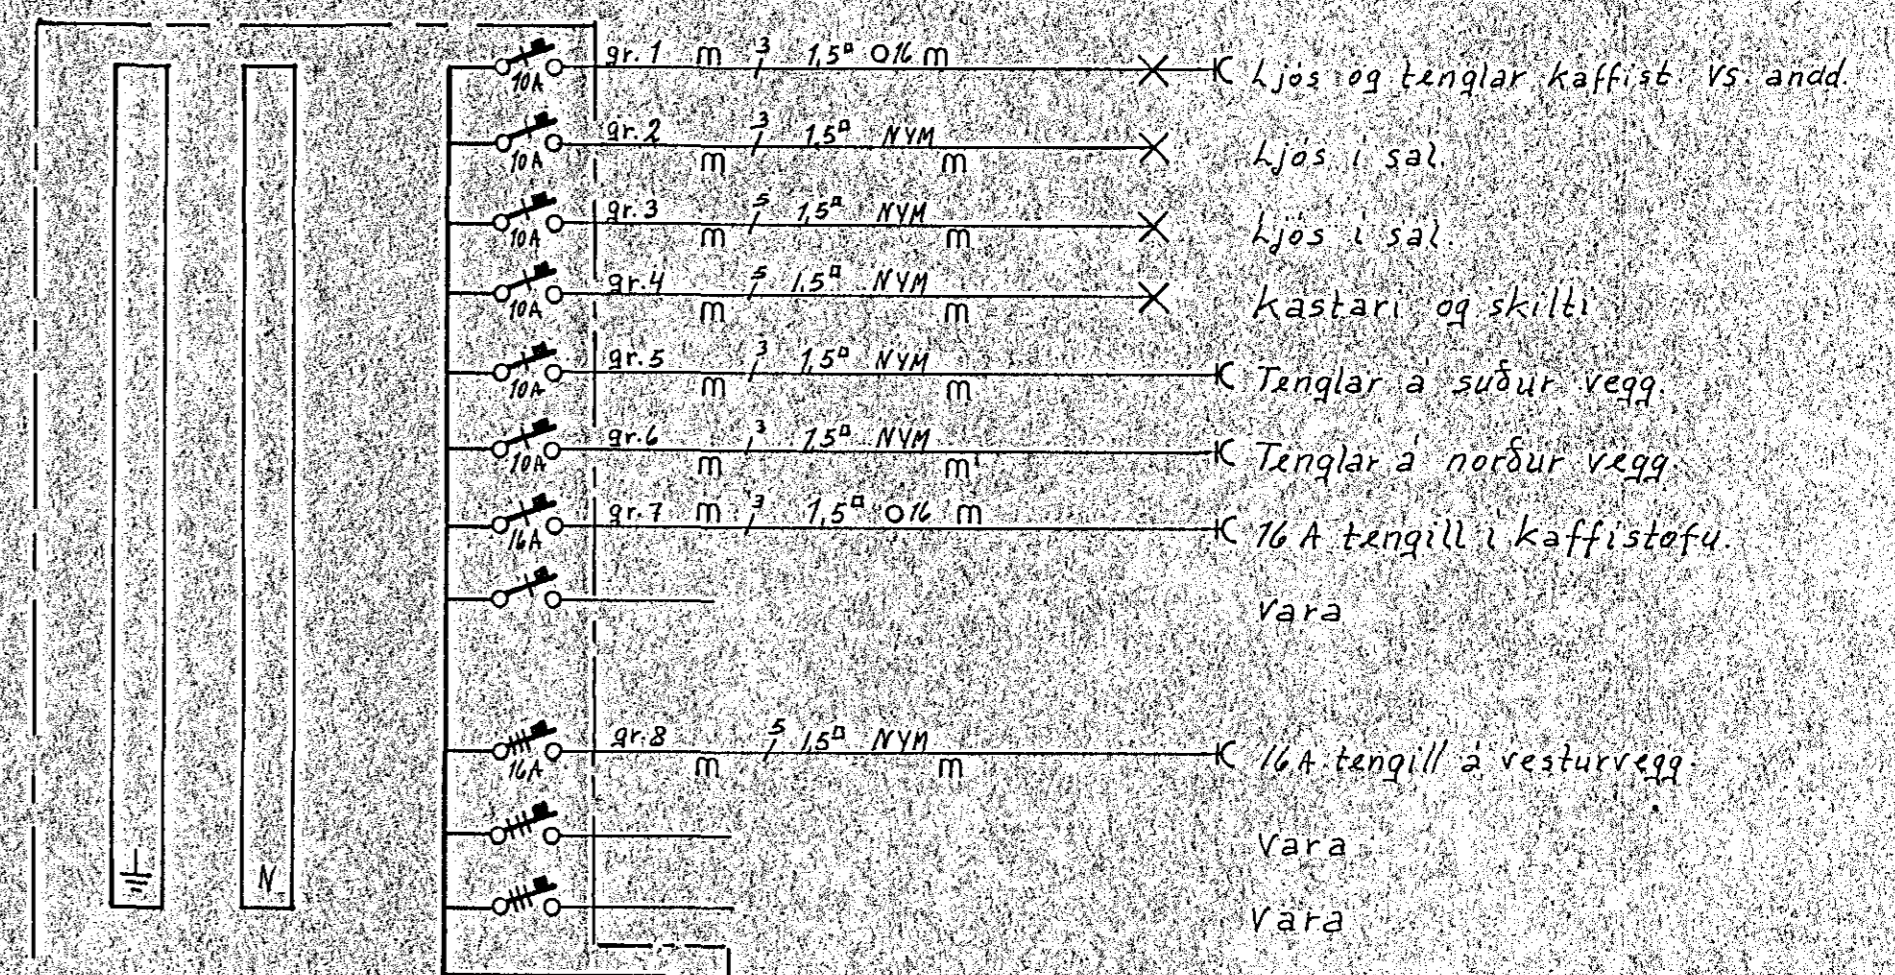 gr.1 m 3 1,5□ O16 m Ljós og tenglar kaffist. vs. andd.
10A
gr.2 3 1,5□ NYM Ljós í sal.
10A m m
gr.3 5 1,5□ NYM Ljós í sal.
10A m m
gr.4 5 1,5□ NYM Kastari og skilti
10A m m
gr.5 3 1,5□ NYM Tenglar á suður vegg.
10A m m
gr.6 3 1,5□ NYM Tenglar á norður vegg.
10A m m
gr.7 m 3 1,5□ O16 m 16 A tengill í kaffistofu.
16A
Vara
gr.8 5 1,5□ NYM 16A tengill á vesturvegg.
16A m m
Vara
N
Vara